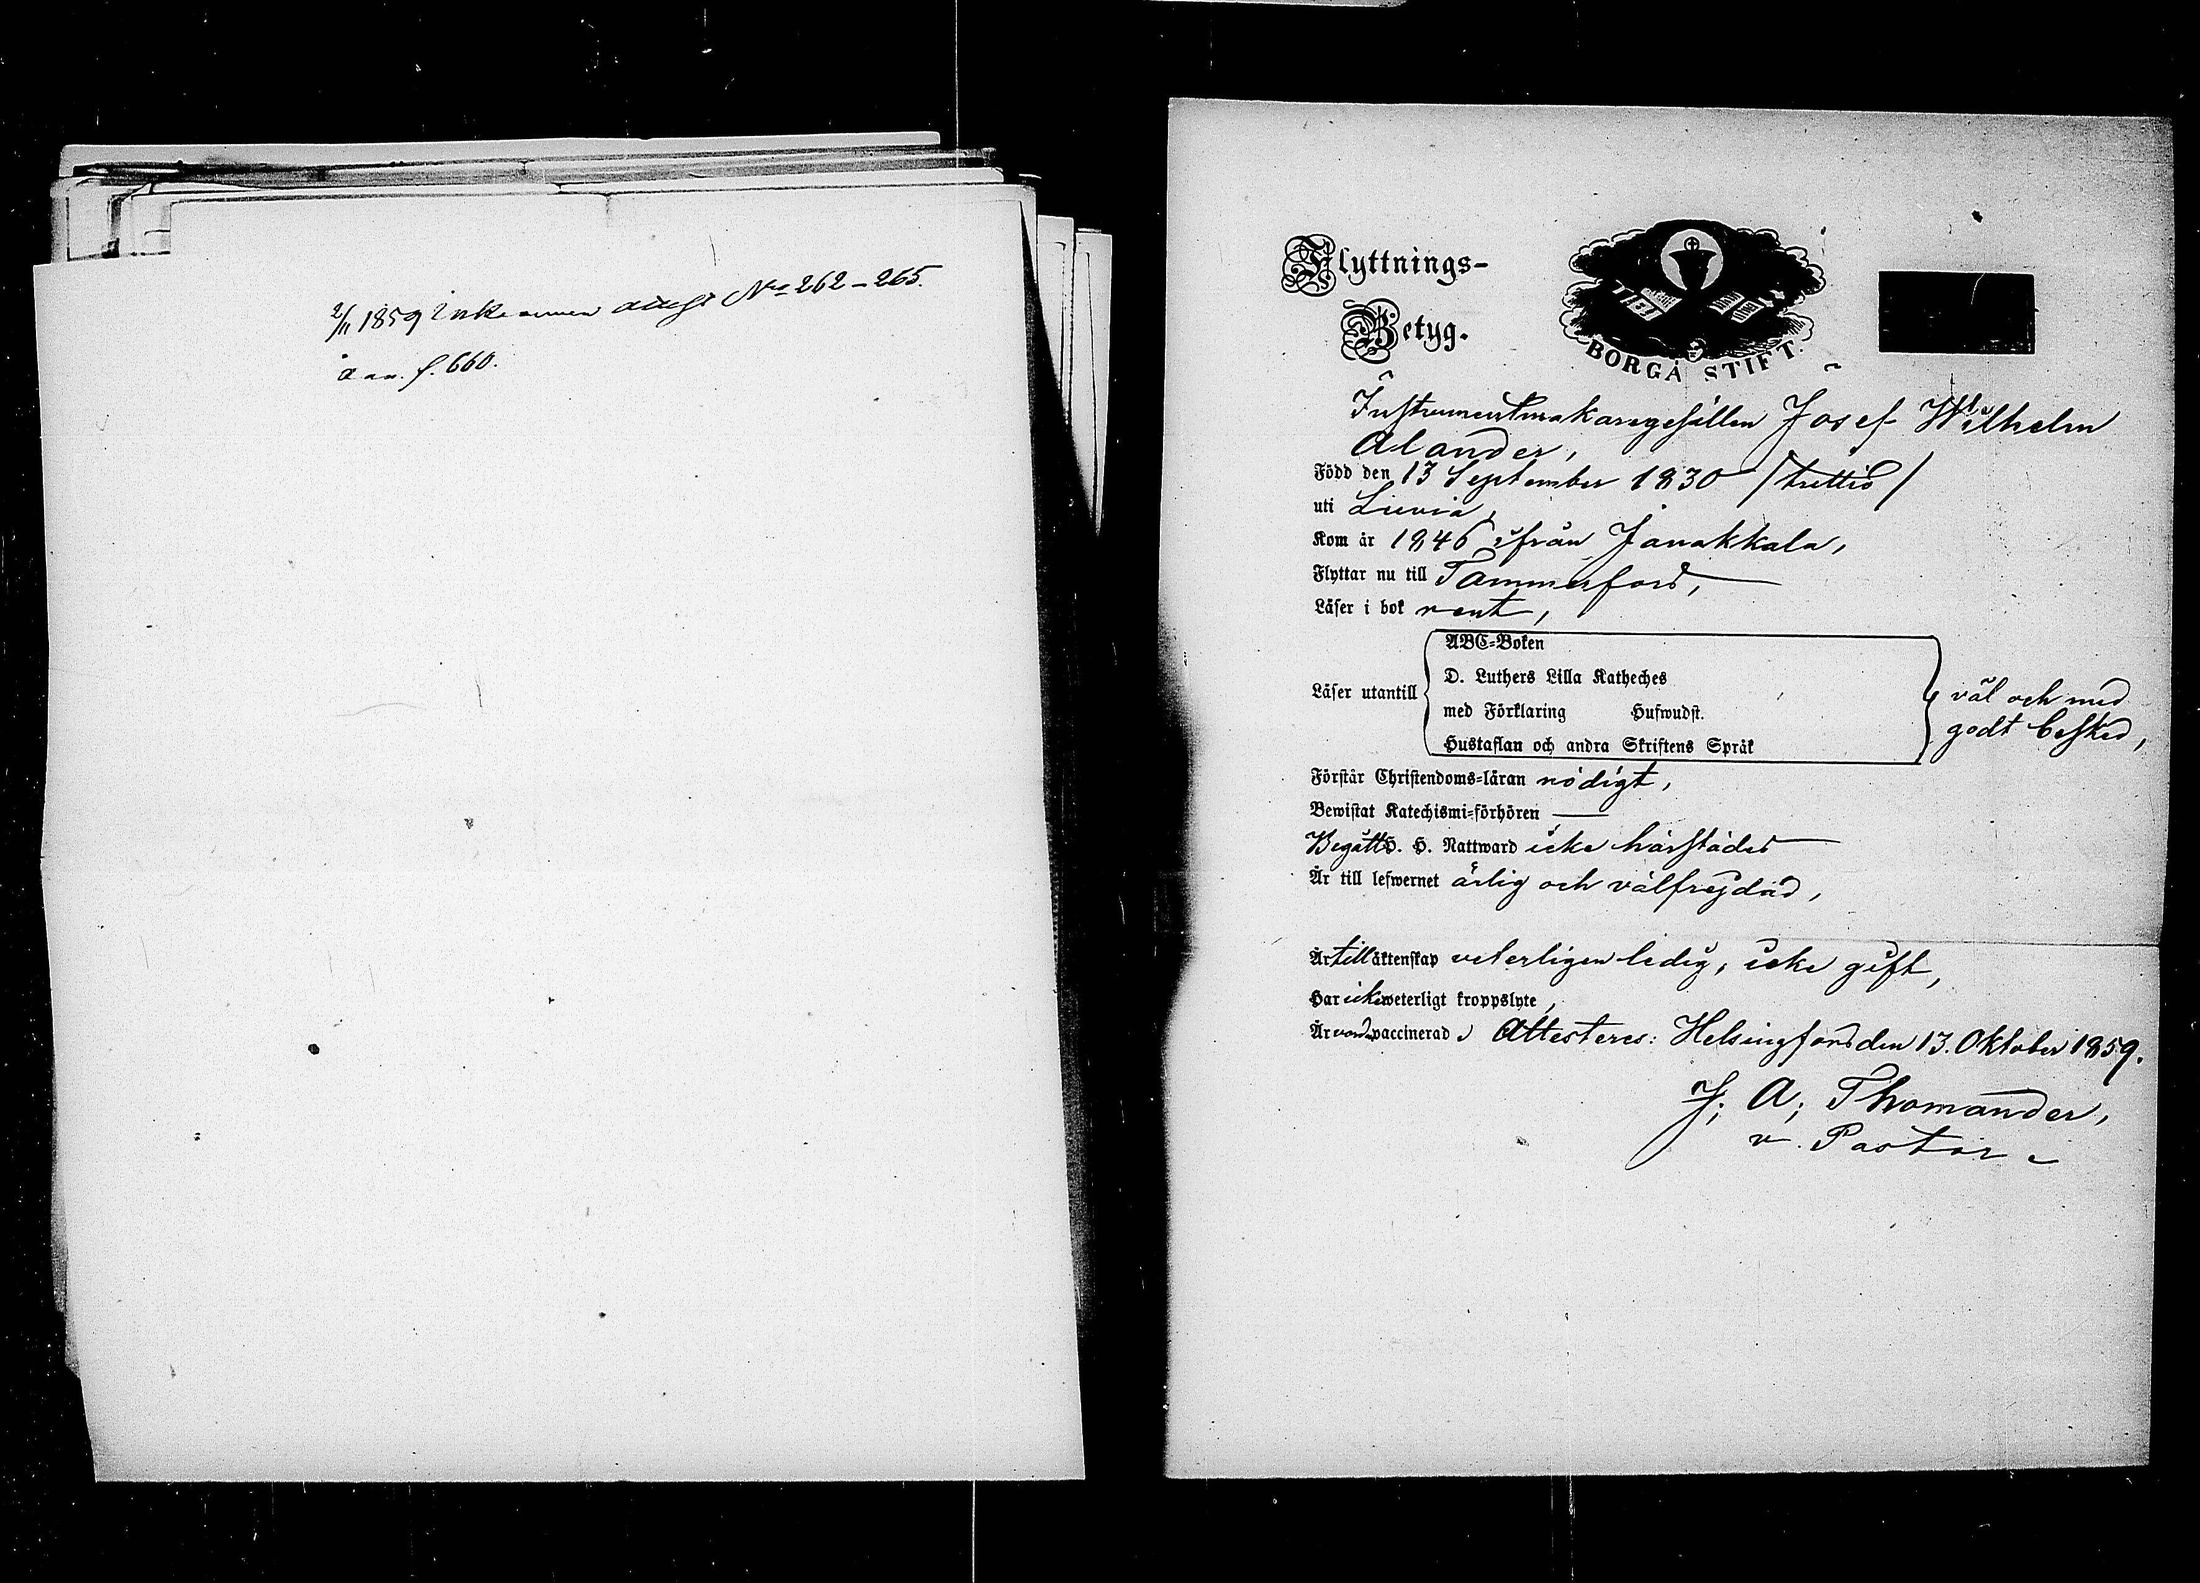 2/11 1859 Inkommen Nro 262–265.
f. 660.
Flyttnings-
Betyg.
BORGÅ STIFT.
Instrumentmakaregesällen Josef Wilhelm
Alander,
Född den 13 September 1830 /trettio/
uti Luvia,
Kom år 1846 ifrån Janakkala,
Flyttar nu till Tammerfors,
Läser i bok rent,
Läser utantill
ABC-Boken
D. Luthers Lilla Katheches
med Förklaring Hufwudst.
Hustaflan och andra Skriftens Språk
väl och med
godt besked,
Förstår Christendoms-läran nödigt,
Bewistat Katechismi-förhören —
Begått H. H. Nattward icke härstädes
Är till lefwernet ärlig och välfrejdad,
Är till äktenskap veterligen ledig, icke gift,
Har icke weterligt kroppslyte,
Är vaccinerad, Attesteres: Helsingfors den 13. Oktober 1859.
J; A; Thomander,
v. Pastor